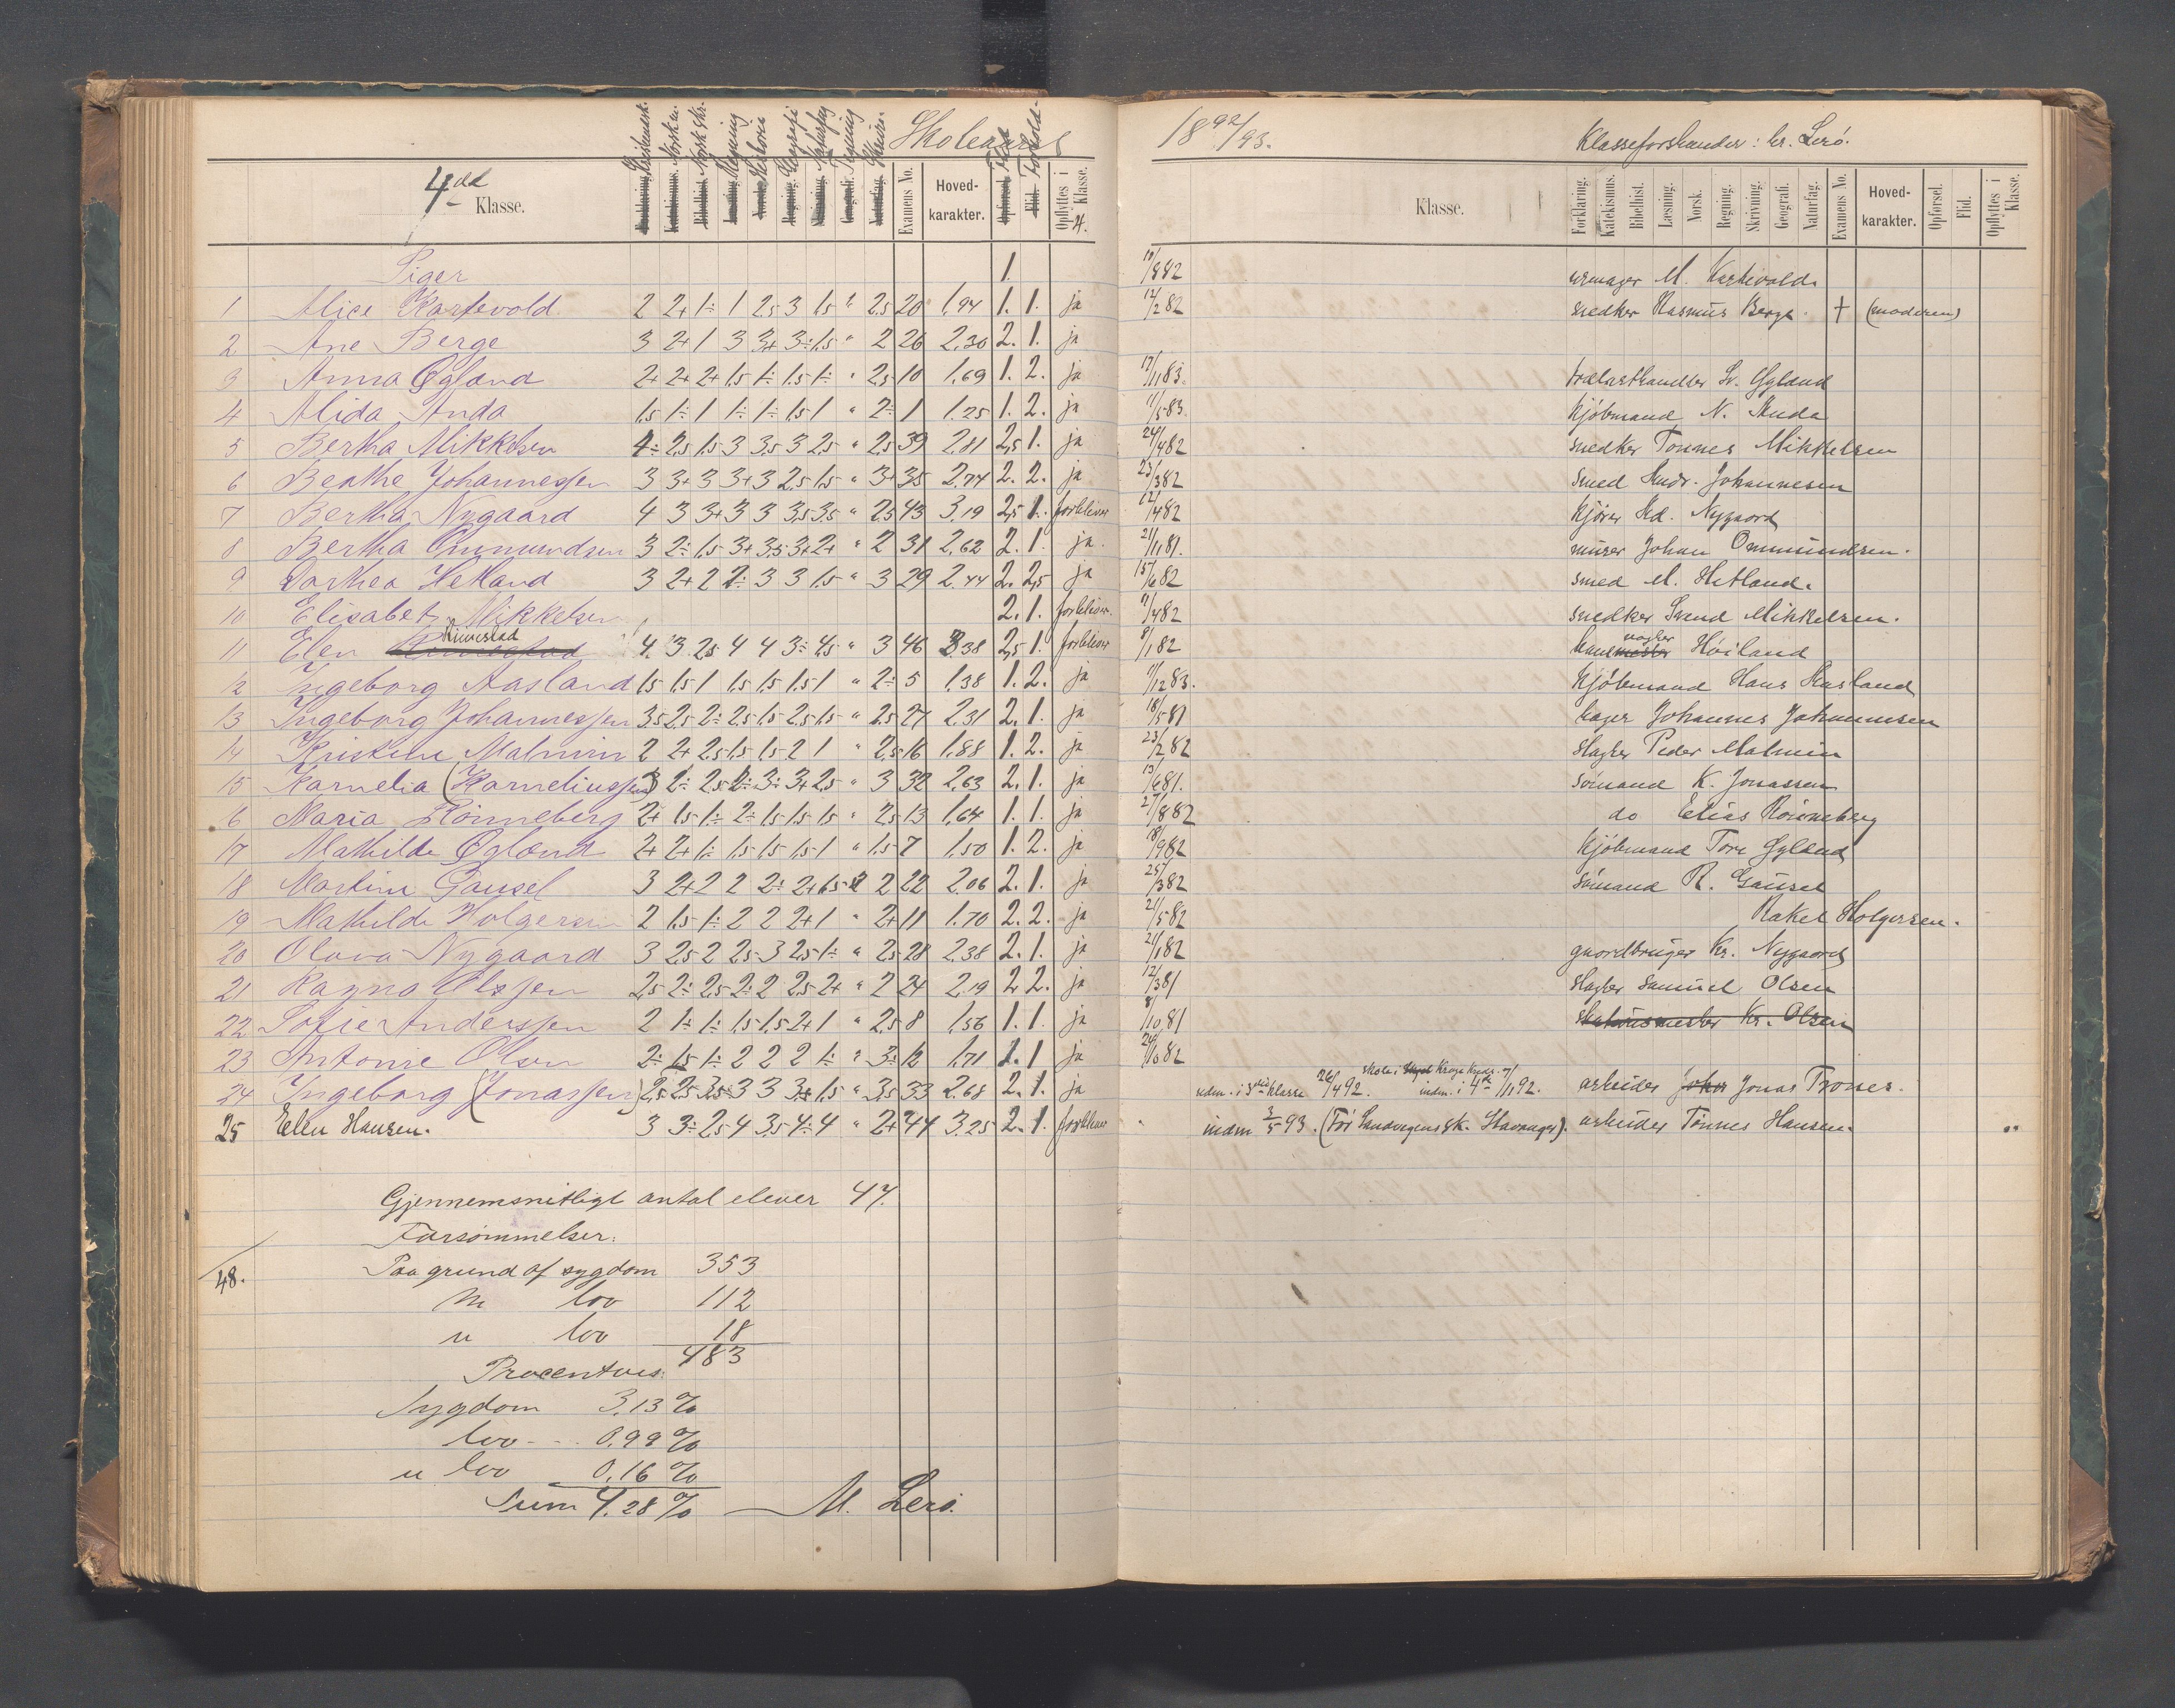 Skoleaaret
4de Klasse.
Kristendsk. Norsk m. Norsk skr. Regning Historie Geografi Naturfag Tegning Skrivn. Examens No. Hoved-karakter. Flid Forhold. Opflyttes i Klasse. 4.
Piger 1.
1 Alice Kartevold 2 2+ 1÷ 1 2,5 3 1,5 " 2,5 20 1,94 1. 1. ja
2 Ane Berge 3 2+ 1 3 3+ 3÷ 1,5 " 2 26 2,30 2. 1. ja
3 Anna Øgland 2+ 2+ 2+ 1,5 1÷ 1,5 1÷ " 2,5 10 1,69 1. 2. ja
4 Alida Anda 1,5 1÷ 1 1÷ 1÷ 1,5 1 " 2÷ 1 1.25 1. 2. ja
5 Bertha Mikkelsen 4÷ 2,5 1,5 3 3,5 3 2,5 " 2,5 39 2,81 2,5 1. ja
6 Beathe Johannessen 3 3+ 3 3+ 3 2,5 1,5 " 3+ 35 2.74 2. 2. ja
7 Bertha Nygaard 4 3 3+ 3 3 3,5 3,5 " 2,5 43 3,19 2,5 1. forbliver
8 Bertha Ommundsen 3 2÷ 1,5 3+ 3,5 3+ 2+ " 2 31 2,62 2. 1. ja
9 Dorthea Hetland 3 2+ 2 2÷ 3 3 1,5 " 3 29 2.44 2. 2,5 ja
10 Elisabet Mikkelsen 2. 1. forbliver.
11 Elen Rimestad 4. 3 2,5 4 4 3÷ 4,5 " 3 46 3.38 2,5 1. forbliver
12 Ingeborg Aasland 1,5 1,5 1 1,5 1,5 1,5 1 " 2÷ 5 1,38 1. 2. ja
13 Ingeborg Johannessen 3,5 2,5 2÷ 2,5 1,5 2,5 1,5 " 2,5 27 2,31 2. 1. ja
14 Kristine Malmin 2 2+ 2,5 1,5 1,5 2 1 " 2,5 16 1,88 1. 2. ja
15 Karnelia (Karneliussen) 3 2÷ 2,5 2÷ 3÷ 3+ 2,5 " 3 32 2,63 2. 1. ja
6 Maria Rönneberg 2+ 1,5 1÷ 2÷ 1,5 1,5 1,5 " 2,5 13 1,64 1. 1. ja
17 Mathilde Øgland 2+ 2+ 1÷ 1,5 1,5 1,5 1 " 1,5 7 1,50 1. 2. ja
18 Martine Gausel 3 2+ 2 2 2÷ 2+ 1,5 " 2 22 2,06 2. 1. ja
19 Mathilde Holgersen 2 1,5 1÷ 2 2 2+ 1 " 2+ 11 1.70 2. 2. ja
20 Olava Nygaard 3 2,5 2 2,5 3 2,5 1÷ " 2,5 28 2.38 2. 1. ja
21 Ragna Olsen 2,5 2÷ 2,5 2÷ 2 2,5 2+ " 2 24 2,19 2 2. ja
22 Sofie Anderssen 2 1÷ 1÷ 1,5 1,5 2+ 1 " 2,5 8 1,56 1. 1. ja
23 Antonie Olsen 2÷ 1,5 1÷ 2 2 2 1÷ " 3÷ 12 1,71 1. 1 ja
24 Ingeborg (Jonassen) 2,5 2,5 3,5 3 3 3+ 1,5 " 3,5 33 2.68 2. 1. ja
25 Elen Hansen. 3 3÷ 2,5 4 3,5 4÷ 4 " 2+ 44 3.25 2. 1. forbliver
Gjennemsnitligt antal elever 47.
Forsømmelser:
48. Paa grund af sygdom 353
M lov 112
u lov 18
483
Procentvis:
Sygdom 3,13 %
lov 0,99 %
u lov 0,16 %
Sum 4.28 % M. Lerø.
1892/93. Klasseforstander: hr. Lerö.
Klasse. Forklaring. Katekismus. Bibelhist. Læsning. Norsk. Regning. Skrivning. Geografi. Naturfag. Examens No. Hoved-karakter. Opførsel. Flid. Opflyttes i Klasse.
10/8 82 urmager M. Kartevold.
12/2 82 snedker Rasmus Berge. † (moderen)
17/11 83. trælasthandler Sv. Øgland
11/5 83. kjöbmand N. Anda
24/4 82 snedker Tønnes Mikkelsen
23/3 82 smed Andr. Johannesen
12/4 82 kjörer Ad. Nygaard
21/11 81. murer Johan Ommundsen.
15/6 82 smed M. Hetland.
11/4 82 snedker Svend Mikkelsen.
8/1 82 Høiland
11/12 83. kjöbmand Hans Aasland
18/5 81 bager Johannes Johannesen
23/2 82 slagter Peder Malmin
13/6 81. sömand K. Jonassen
27/8 82 do Elias Rönneberg
18/9 82 kjöbmand Tore Øgland
25/3 82 sömand R. Gausel
21/5 82 Rakel Holgersen.
21/1 82 gaardbruger Kr. Nygaard
12/3 81 slagter Samuel Olsen
8/10 81 Kr. Olsen
24/10 82
indm. i 3die klasse 26/4 92. indm. i 4de 7/11 92. arbeider Jonas Troner.
indm 3/5 93. (Før Sandvigens sk. Stavanger). arbeider Tönnes Hansen.